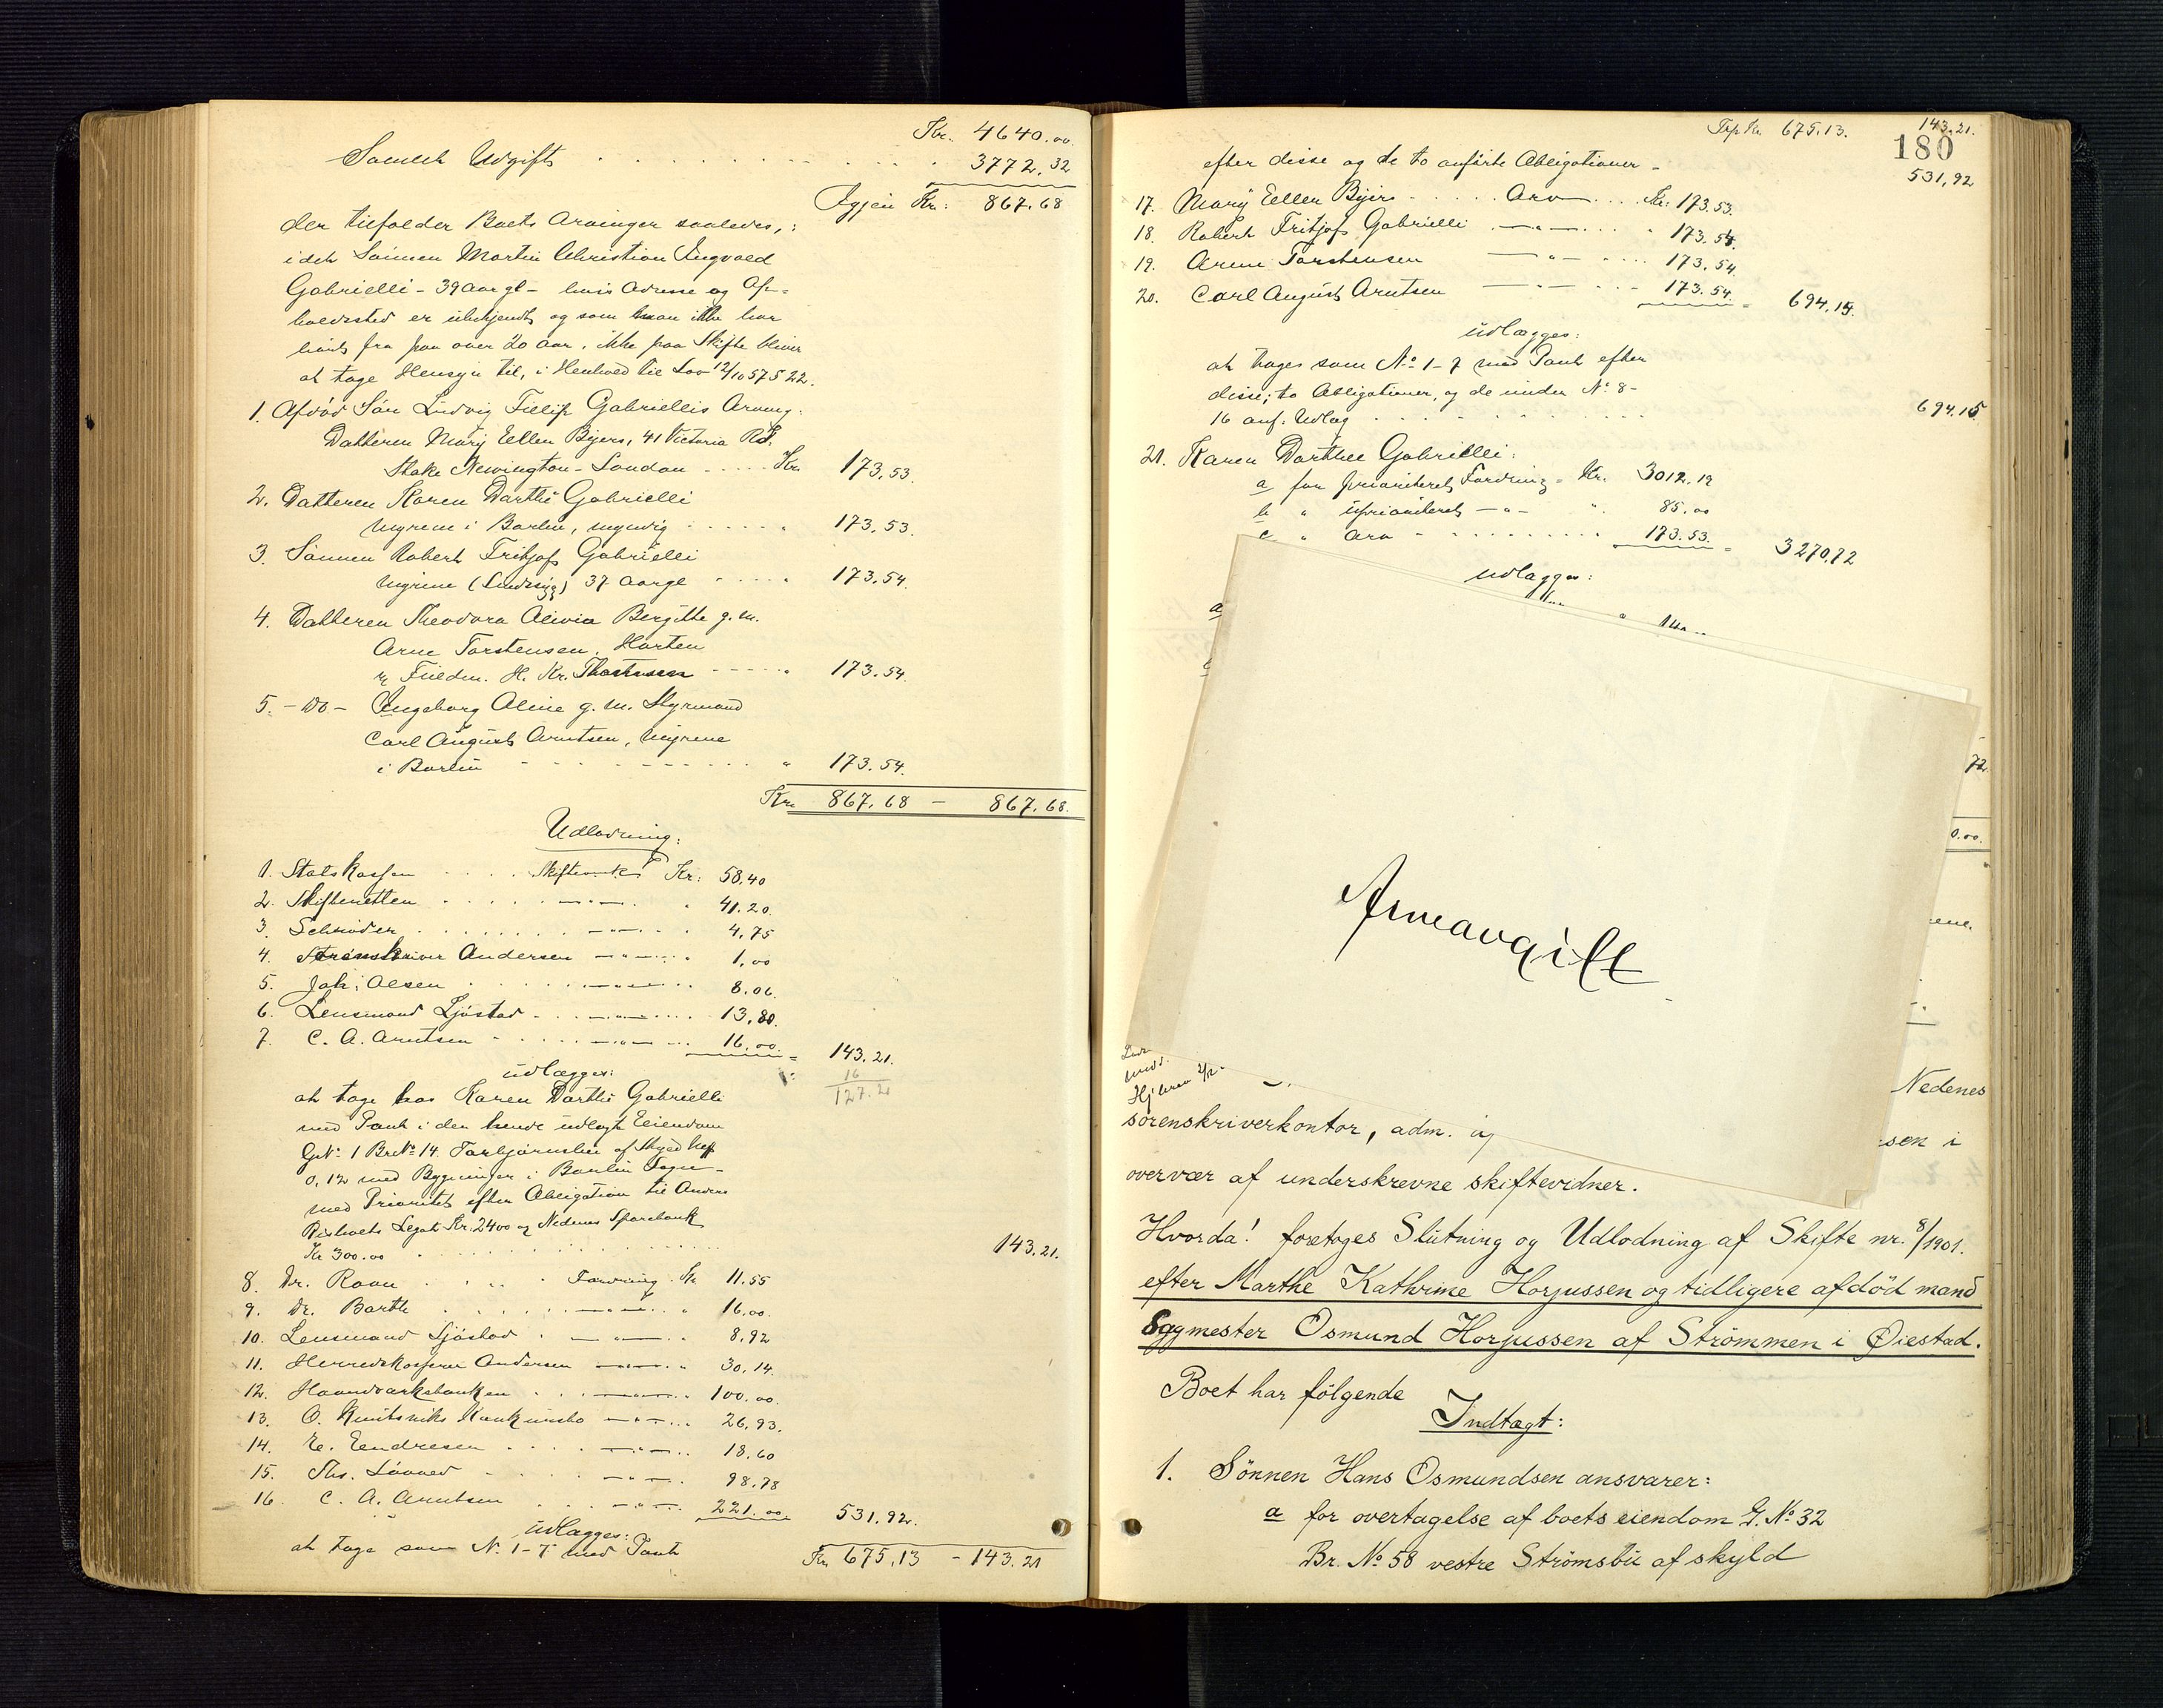 Kr. 4640.00
Samlet Udgift 3772.32
Igjen Kr: 867.68
der tilfalder Boets Arvinger saaledes,:
idet Sønnen Martin Christian Ingvald
Gabrielli - 39 aar gl - hvis Adresse og Op-
holdssted er ubekjendt og som man ikke har
hørt fra paa over 20 aar, ikke paa Skifte bliver
at tage Hensyn til, i Henhold til Lov 12/10 57 § 22.
1. Afdød Søn Ludvig Fillip Gabriellis Arving:
Datteren Mary Ellen Byers, 41 Victoria Rd.
Stoke Newington - London Kr. 173.53
2. Datteren Karen Dorthe Gabrielli
Myrene i Barbu, myndig " 173.53.
3. Sønnen Robert Fritjof Gabrielli
Myrene 37 aargl " 173.54.
4. Datteren Theodora Olivia Bergitte g. m.
Arne Torstensen, Horten
H. Kr. Thorstensen " 173.54.
5. - Do - Ingeborg Oline g. m. Styrmand
Carl August Arntsen, Myrene
i Barbu " 173.54.
Kr. 867.68 - 867.68.
Udlodning:
1. Statskassen Skifteomk. Kr: 58.40
2. Skifteretten - " - " 41.20.
3. Schrøder - " - " 4.75
4. Sorenskriver Andersen - " - " 1.00
5. Joh: Olsen - " - 8.06
6. Lensmand Ljøstad - " - 13.80.
7. C. A. Arntsen - " - 16.00 = 143.21.
udlægges: 16
at tage hos Karen Dorthe Gabrielli 127.21
med Pant i den hende udlagte Eiendom
GNo. 1 BrNo. 14. Torbjørnsbu af Skyld
0,12 med Bygninger i Barbu Sogn -
med Prioritet efter Obligation til Anders
Legat Kr: 2400 og Nedenes Sparebank
Kr 300.00 143.21.
8. Dr. Raan Fordring Kr 11.55
9. Dr. Barth - " - " 16.00.
10. Lensmand Ljøstad - " - 8.92
11. Herredskasserer Andersen - " - " 30.14.
12. Haandværksbanken - " - 100.00.
13. O. Konkursbo - " - 26.93.
14. E. Endresen - " - 18.60
15. Ths. - " - 98.78
16. C. A. Arntsen - " - 221.00. 531.92.
udlægges:
at tage som No. 1-7 med Pant Kr. 675.13 - 143.21
Trp Kr. 675.13. 143.21.
180
efter disse og de to anførte Obligationer - 531.92
17. Mary Ellen Byers Arv Kr: 173.53.
18. Robert Fritjof Gabrielli - " - " 173.54.
19. Arne Torstensen - " - " 173.54.
20. Carl August Arntsen - " - 173.54. = 694.15.
udlægges:
at tages som No. 1-7 med Pant efter
disse, to Obligationer, og de under No. 8-
16 anf. Udlæg 694.15
21. Karen Dorthee Gabrielli:
a for prioriteret Fordring = Kr. 3012.19
b " uprioriteret - " - " 85.00
c " Arv 173.53. = 3270.72
udlægges:
a
72
0.00
Arveavgift
Nedenes
sorenskriverkontor, adm. af sen i
overvær af underskrevne skiftevidner.
Hvorda! foretoges Slutning og Udlodning af Skifte nr. 8/1901.
efter Marthe Kathrine Horjussen og tidligere afdöd mand
Bygmester Osmund Horjussen af Strömmen i Øiestad.
Boet har fölgende
Indtægt:
1. Sönnen Hans Osmundsen ansvarer:
a for overtagelse af boets eiendom G. No 32
Br. No 58 vestre Strömsbu af skyld